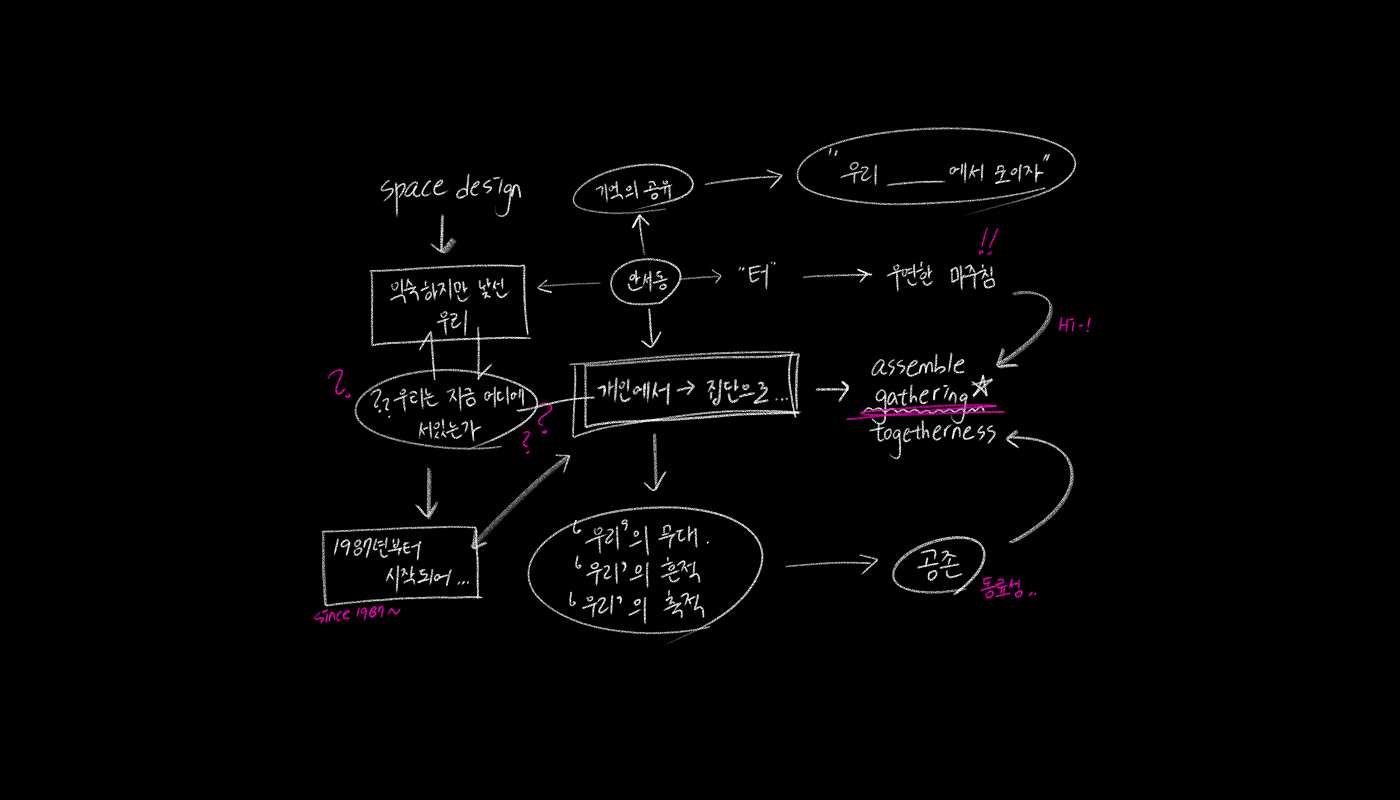 space design
기억의 공유
"우리 ____에서 모이자"
!!
익숙하지만 낯선
우리
안서동
"터"
우연한 마주침
Hi-!
?
??우리는 지금 어디에
서있는가
??
개인에서 → 집단으로...
assemble
gathering☆
togetherness
1987년부터
시작되어...
since 1987~
'우리'의 무대.
'우리'의 흔적
'우리'의 축적
공존
동료성..